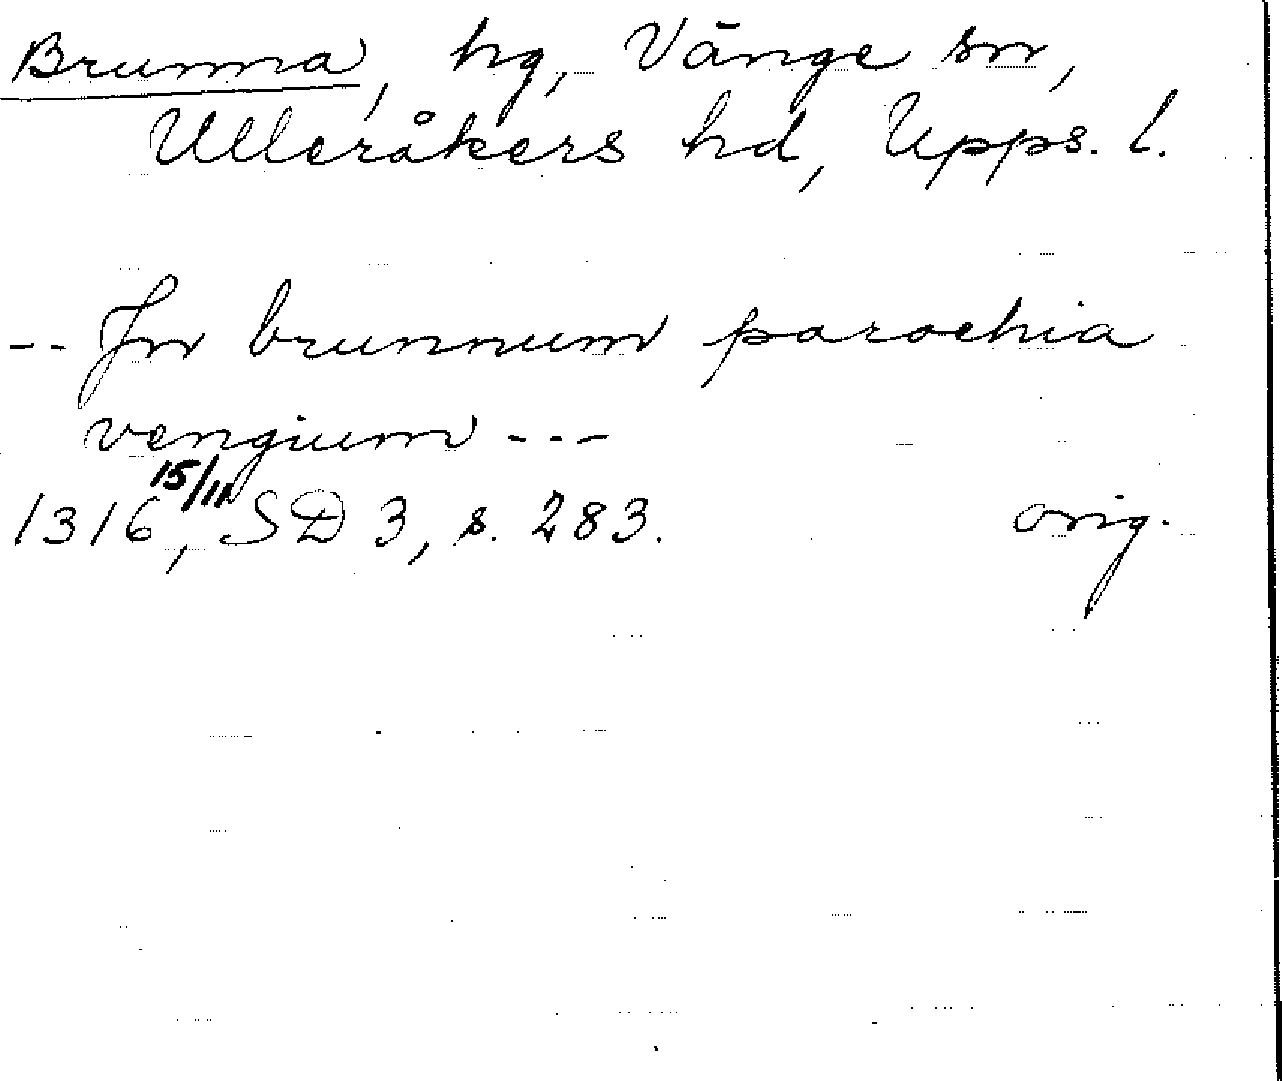 Brunna, hg, Vänge sn,
Ulleråkers hd, Upps. l.
-- Jn brunnum parochia
vengium ---
1316 15/11, SD 3, s. 283. orig.